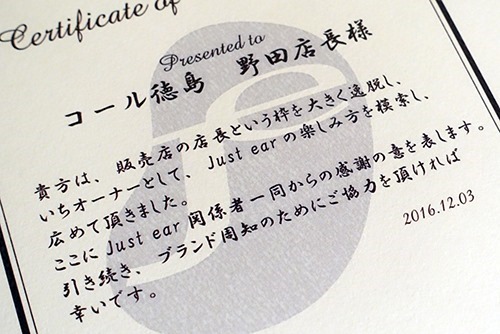 Certificate of
Presented to
コール徳島　野田店長様
貴方は、販売店の店長という枠を大きく逸脱し、
いちオーナーとして、Just ear の楽しみ方を模索し、
広めて頂きました。
ここに Just ear 関係者一同からの感謝の意を表します。
引き続き、ブランド周知のためにご協力を頂ければ
幸いです。
2016.12.03